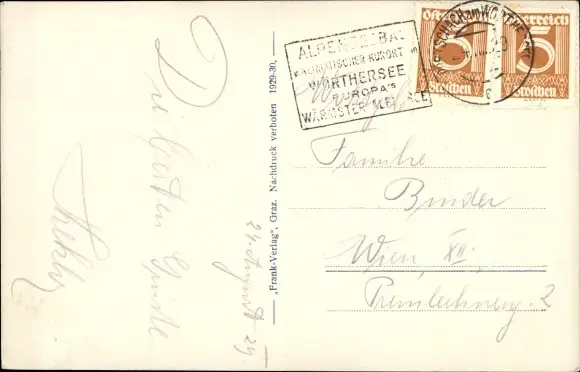 Die besten Grüße
24. August 29
„Frank-Verlag", Graz. Nachdruck verboten 1929-30.
ALPENSEEBAD
KLIMATISCHER KURORT
WÖRTHERSEE
EUROPA'S
WÄRMSTER ALPENSEE
PÖRTSCHACH am WÖRTHERSEE
Österreich
5
Groschen
Österreich
5
Groschen
Familie
Binder
Wien XII.
2